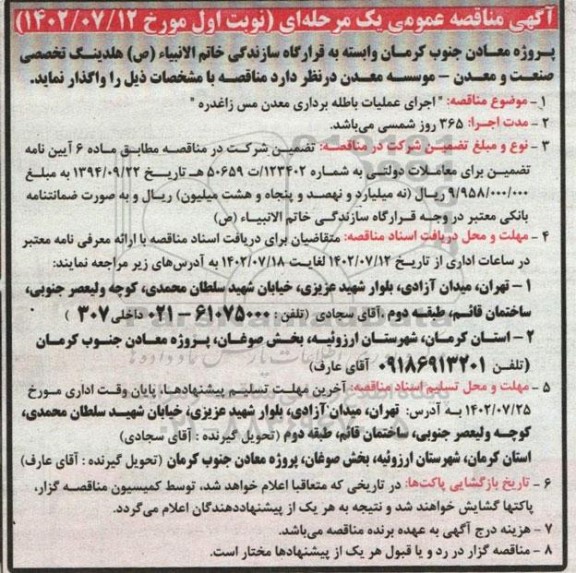 آگهی مناقصه عمومی یک مرحله‌ای (نوبت اول مورخ ۱۴۰۲/۰۷/۱۲)
پروژه معادن جنوب کرمان وابسته به قرارگاه سازندگی خاتم الانبیاء (ص) هلدینگ تخصصی
صنعت و معدن – موسسه معدن درنظر دارد مناقصه با مشخصات ذیل را واگذار نماید.
۱ – موضوع مناقصه: " اجرای عملیات باطله برداری معدن مس زاغدره "
۲ – مدت اجرا: ۳۶۵ روز شمسی می‌باشد.
۳ – نوع و مبلغ تضمین شرکت در مناقصه: تضمین شرکت در مناقصه مطابق ماده ۶ آیین نامه
تضمین برای معاملات دولتی به شماره ۱۲۳۴۰۲/ت ۵۰۶۵۹ هـ تاریخ ۱۳۹۴/۰۹/۲۲ به مبلغ
۹/۹۵۸/۰۰۰/۰۰۰ ریال (نه میلیارد و نهصد و پنجاه و هشت میلیون) ریال و به صورت ضمانتنامه
بانکی معتبر در وجه قرارگاه سازندگی خاتم الانبیاء (ص)
۴ – مهلت و محل دریافت اسناد مناقصه: متقاضیان برای دریافت اسناد مناقصه با ارائه معرفی نامه معتبر
در ساعات اداری از تاریخ ۱۴۰۲/۰۷/۱۲ لغایت ۱۴۰۲/۰۷/۱۸ به آدرس‌های زیر مراجعه نمایند:
۱ – تهران، میدان آزادی، بلوار شهید عزیزی، خیابان شهید سلطان محمدی، کوچه ولیعصر جنوبی،
ساختمان قائم، طبقه دوم ،آقای سجادی (تلفن : ۶۱۰۷۵۰۰۰ – ۰۲۱ داخلی ۳۰۷ )
۲ – استان کرمان، شهرستان ارزوئیه، بخش صوغان، پروژه معادن جنوب کرمان
(تلفن ۰۹۱۸۶۹۱۳۲۰۱ آقای عارف)
۵ – مهلت و محل تسلیم اسناد مناقصه: آخرین مهلت تسلیم پیشنهادها، پایان وقت اداری مورخ
۱۴۰۲/۰۷/۲۵ به آدرس: تهران، میدان آزادی، بلوار شهید عزیزی، خیابان شهید سلطان محمدی،
کوچه ولیعصر جنوبی، ساختمان قائم، طبقه دوم (تحویل گیرنده : آقای سجادی)
استان کرمان، شهرستان ارزوئیه، بخش صوغان، پروژه معادن جنوب کرمان (تحویل گیرنده : آقای عارف)
۶ – تاریخ بازگشایی پاکت‌ها: در تاریخی که متعاقبا اعلام خواهد شد، توسط کمیسیون مناقصه گزار،
پاکتها گشایش خواهند شد و نتیجه به هر یک از پیشنهاددهندگان اعلام می‌گردد.
۷ – هزینه درج آگهی به عهده برنده مناقصه می‌باشد.
۸ – مناقصه گزار در رد و یا قبول هر یک از پیشنهادها مختار است.